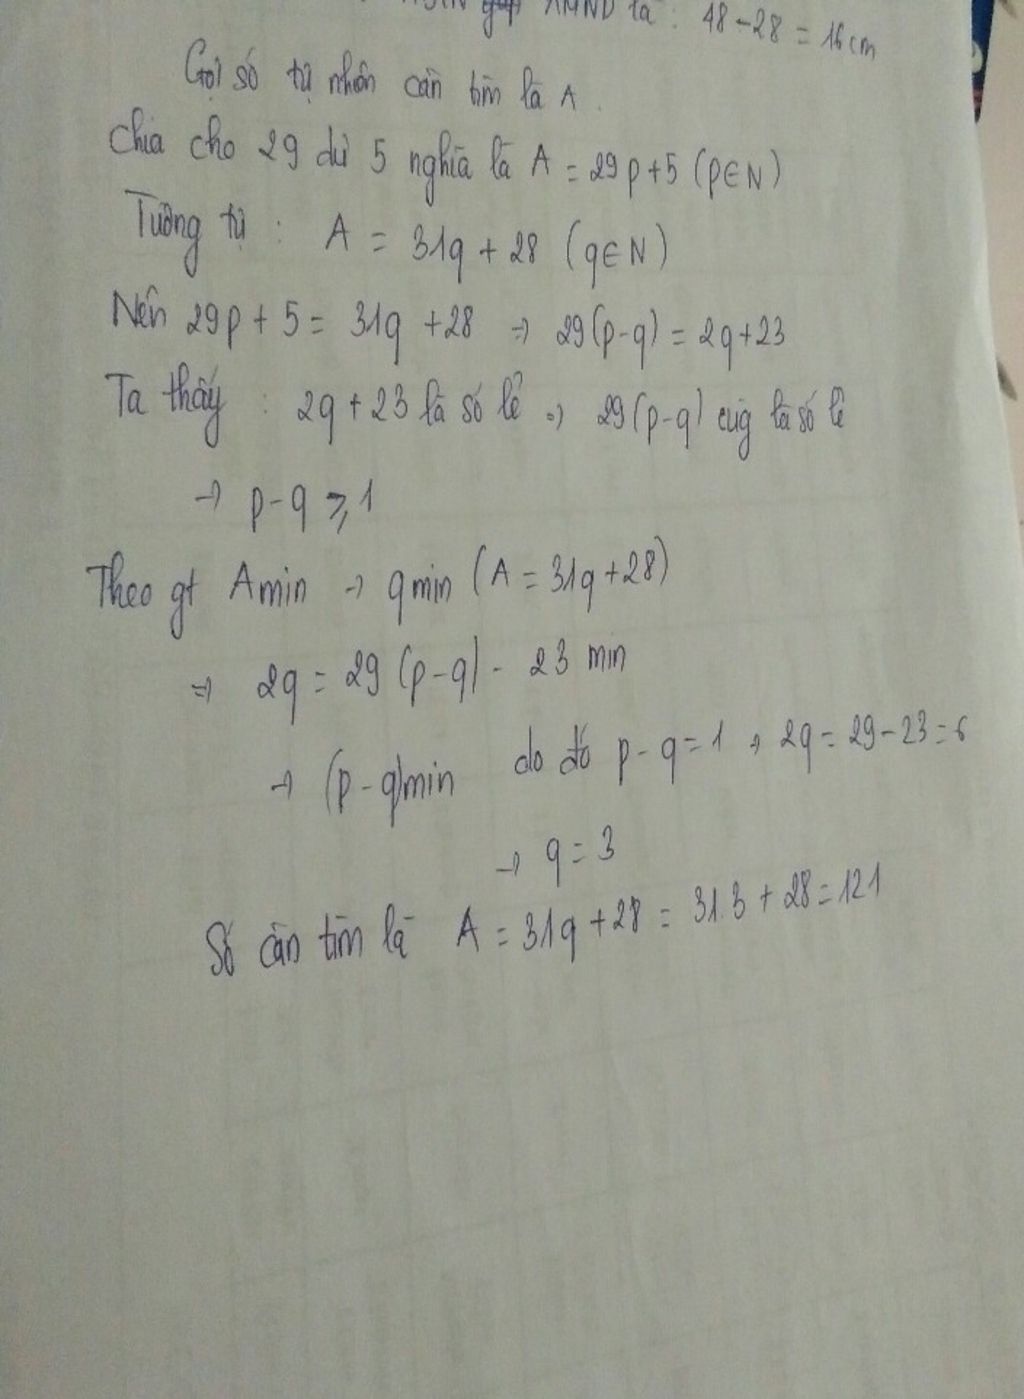 AMND là : 48 - 28 = 16 cm
Gọi số tự nhiên cần tìm là A .
Chia cho 29 dư 5 nghĩa là A = 29p + 5 (p ∈ N)
Tương tự : A = 31q + 28 (q ∈ N)
Nên 29p + 5 = 31q + 28 => 29(p-q) = 2q + 23
Ta thấy : 2q + 23 là số lẻ => 29(p-q) cũg là số lẻ
→ p - q ≥ 1
Theo gt A min → q min (A = 31q + 28)
=> 2q = 29 (p-q) - 23 min
→ (p - q) min do đó p - q = 1 → 2q = 29 - 23 = 6
→ q = 3
Số cần tìm là A = 31q + 28 = 31.3 + 28 = 121